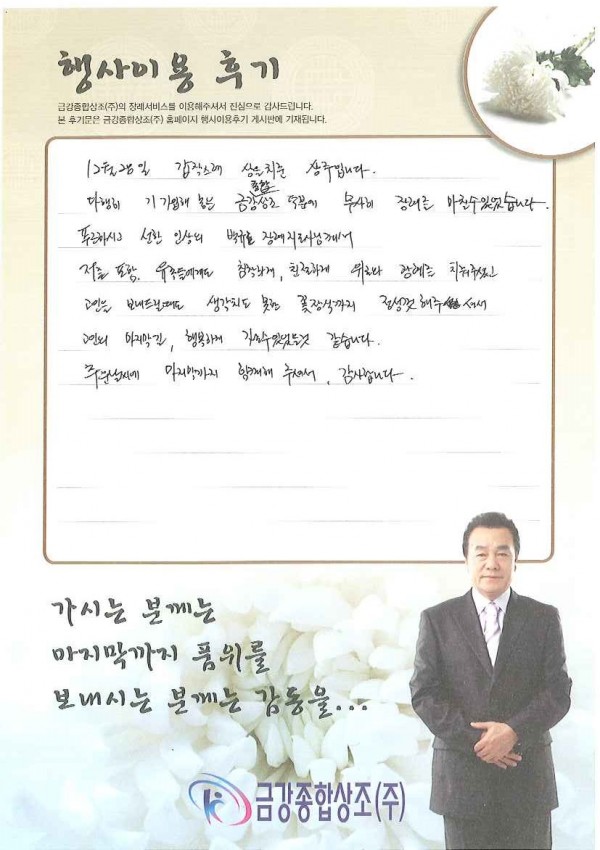 행사이용 후기
금강종합상조(주)의 장례서비스를 이용해주셔서 진심으로 감사드립니다.
본 후기문은 금강종합상조(주) 홈페이지 행사이용후기 게시판에 기재됩니다.
12월 28일 갑작스레 상을치룬 상주입니다.
다행히 기 가입해 놓은 금강종합상조 덕분에 무사히 장례를 마칠수있었습니다.
푸근하시고 선한 인상의 장례지도사님께서
저를 포함, 유족들에게도 침착하게, 친절하게 위로와 장례를 치뤄주셨고
고인을 보내드릴때도 생각치도 못한 꽃장식까지 정성껏 해주셔서
고인의 마지막길, 행복하게 가실수있었던것 같습니다.
추운날씨에 마지막까지 함께해 주셔서, 감사합니다.
가시는 분께는
마지막까지 품위를
보내시는 분께는 감동을...
금강종합상조(주)